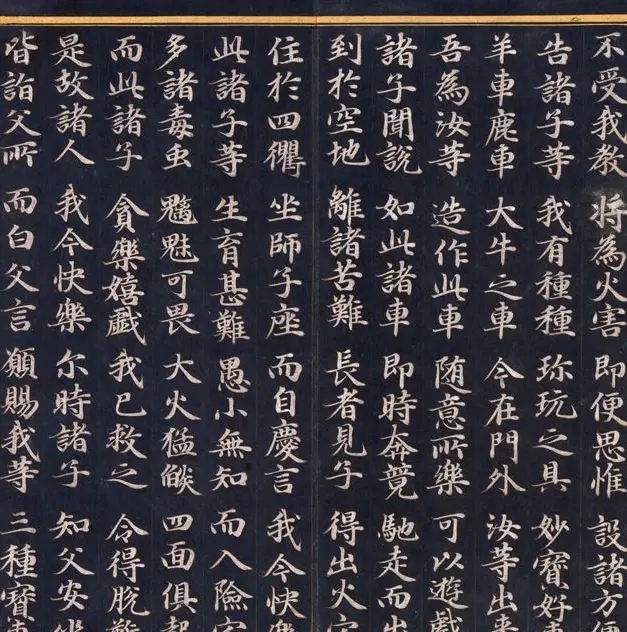 不受我教 將為火害 即便思惟 設諸方便
告諸子等 我有種種 珎玩之具 妙寶好車
羊車鹿車 大牛之車 今在門外 汝等出来
吾為汝等 造作此車 随意所樂 可以遊戲
諸子聞說 如此諸車 即時奔競 馳走而出
到於空地 離諸苦難 長者見子 得出火宅
住於四衢 坐師子座 而自慶言 我今快樂
此諸子等 生育甚難 愚小無知 而入險宅
多諸毒虫 魑魅可畏 大火猛燄 四面俱起
而此諸子 貪樂嬉戲 我已救之 令得脫難
是故諸人 我今快樂 尓時諸子 知父安坐
皆詣父所 而白父言 願賜我等 三種寶車